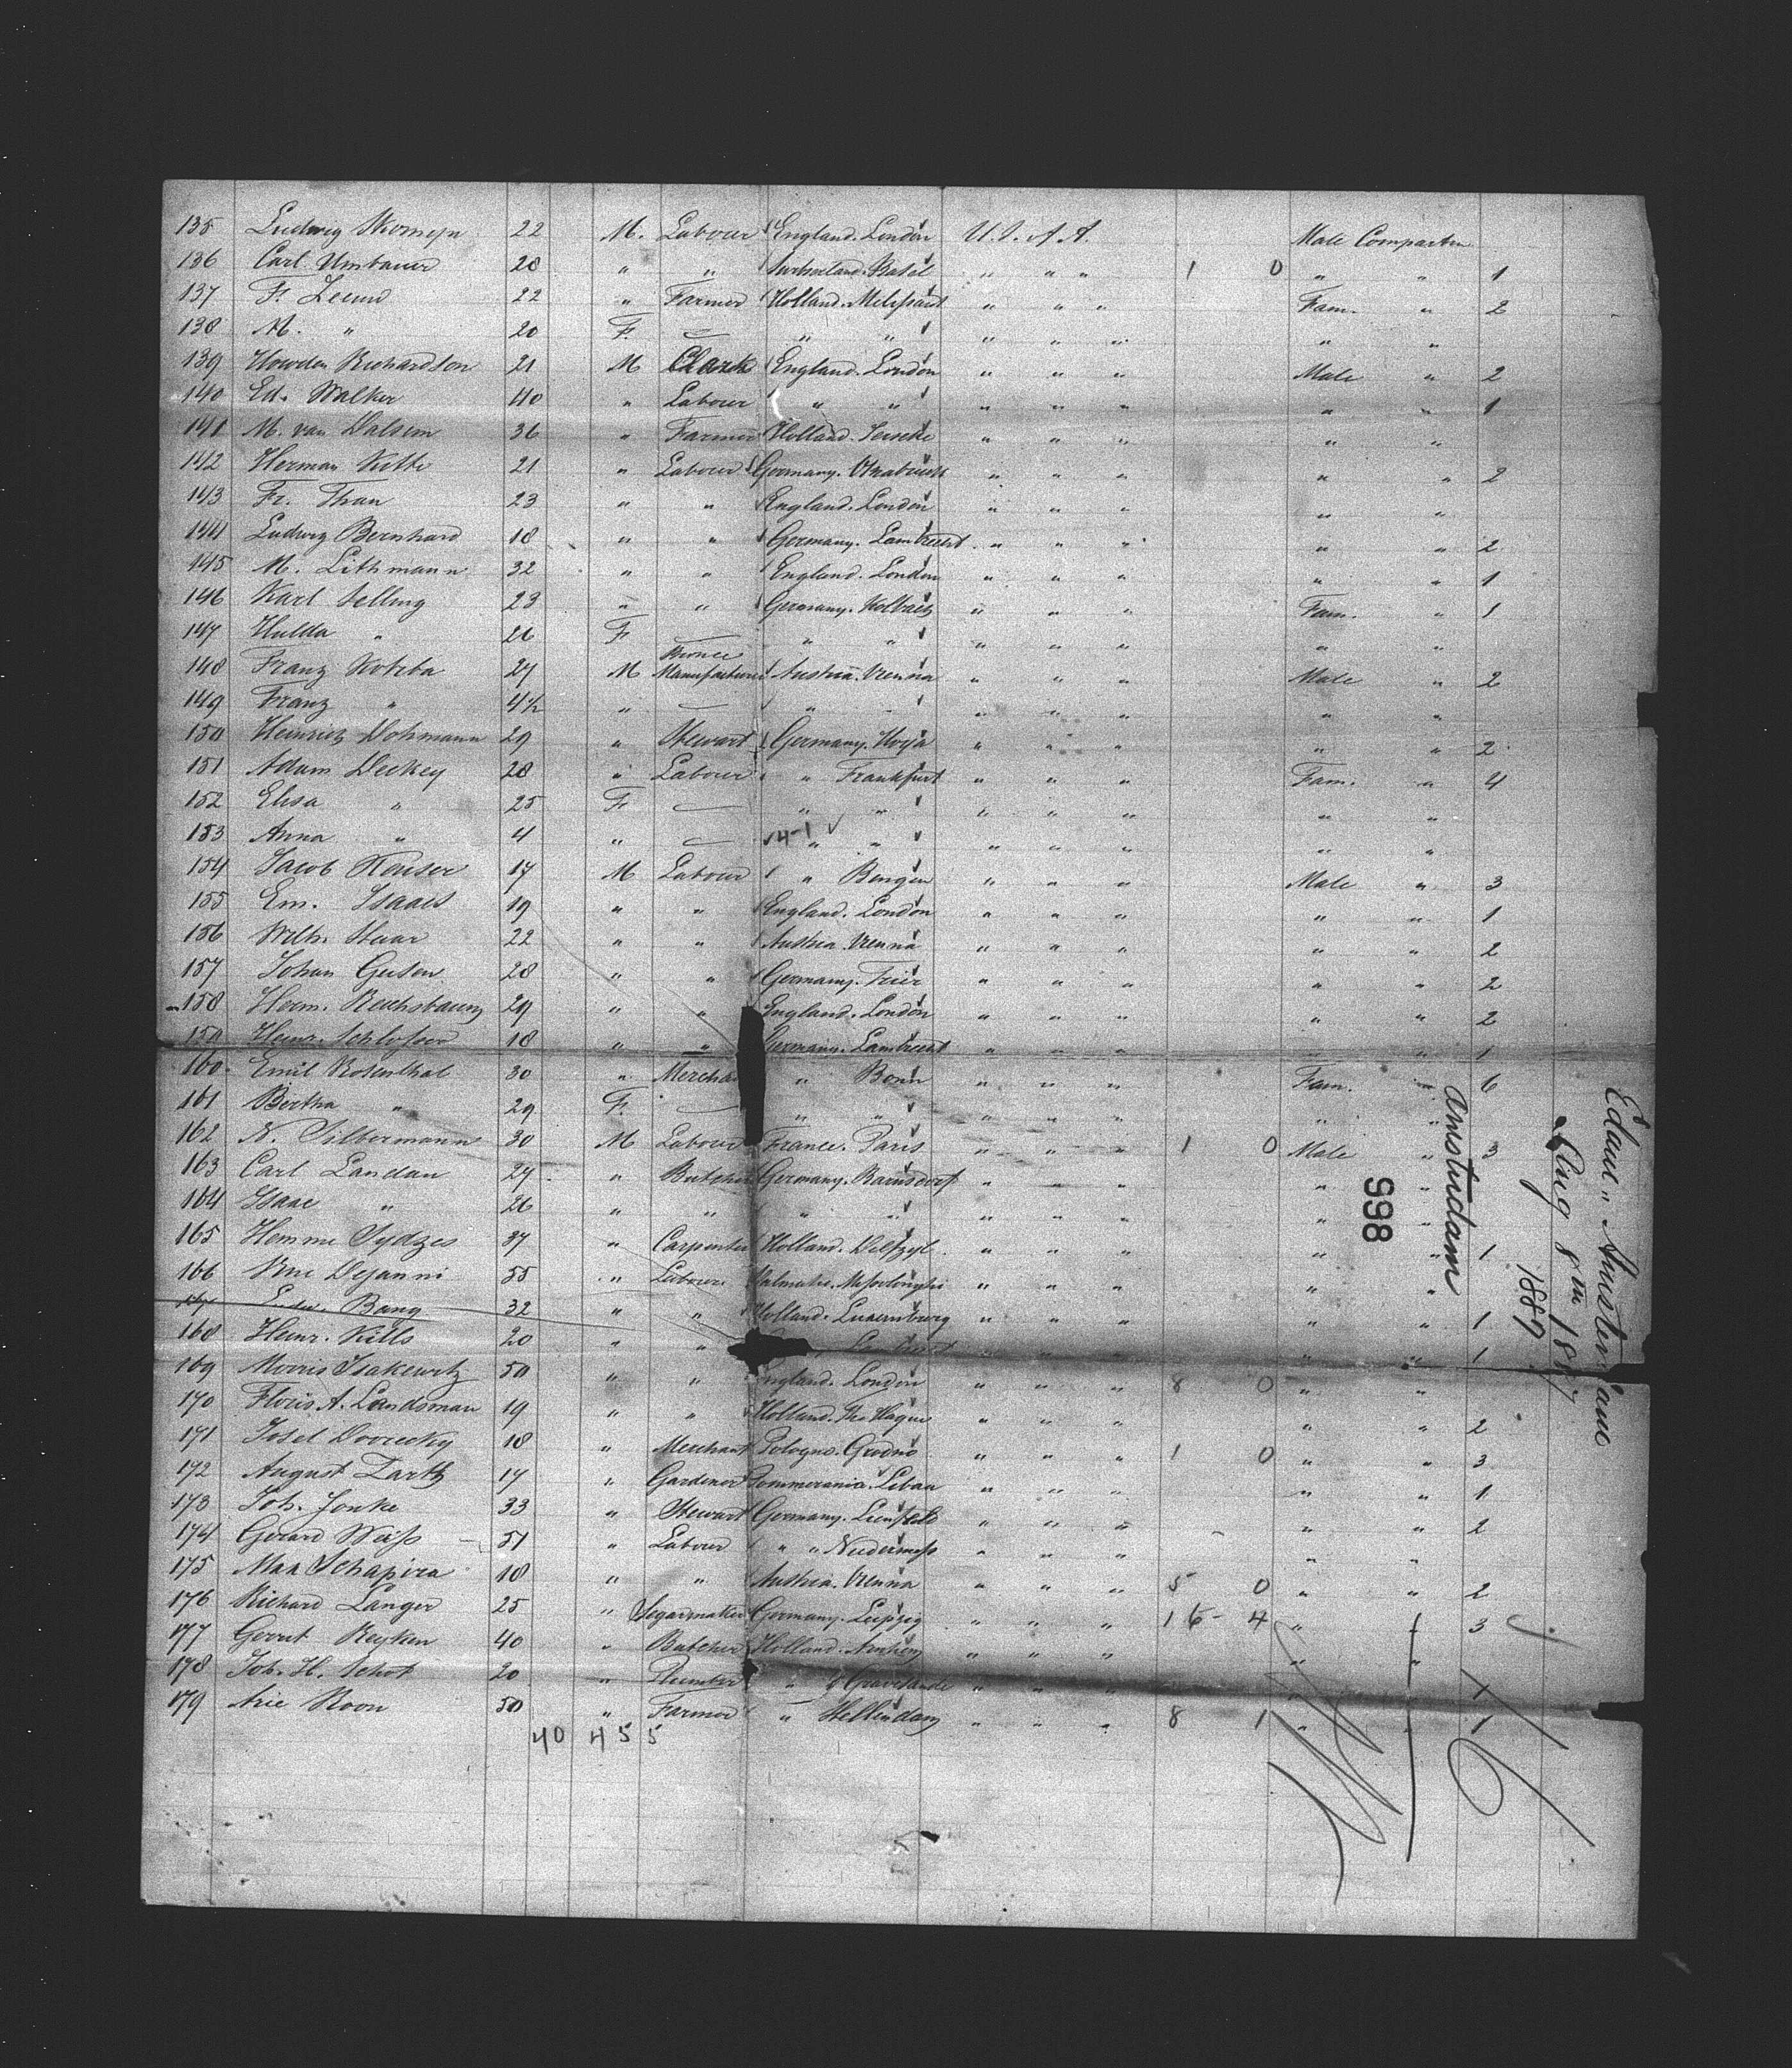 135 Ludwig Skomsyn 22 M. Labour England. London U. S. A A. Male Compartm
136 Carl Umbauer 28 " " Switzerland. Basel " " " 1 0 " " 1
137 F. Leend 22 " Farmer Holland. " " " Fam. " 2
138 M. " 20 F. — " " " " " " "
139 Howden Richardson 21 M Clarck England. London " " " Male " 2
140 Ed. Walker 40 " Labour " " " " " " " 1
141 M. van Dalsem 36 " Farmer Holland. Ierseke " " " " "
142 Herman Kutte 21 " Labour Germany. " " " " " 2
143 Fr. Thran 23 " " England. London " " " " "
144 Ludwig Bernhard 18 " " Germany. Lambrecht " " " " " 2
145 M. Lithmann 32 " " England. London " " " " " 1
146 Karl Selling 23 " " Germany. Kolbatz " " " Fam. " 1
147 Hulda " 26 F. — " " " " " " "
148 Franz Kotzba 27 M Bronce Manufacturer Austria. Vienna " " " Male " 2
149 Franz " 4½ " — " " " " " " "
150 Heinrich Dohmann 29 " Stewart Germany. Hoya " " " " " 2
151 Adam Deckey 28 " Labour " Frankfurt " " " Fam. " 4
152 Elisa " 25 F. — " " " " " " "
153 Anna " 4 " — 4-1 " " " " " " "
154 Jacob Keuser 17 M Labour " Bingen " " " Male " 3
155 Em. Isaacs 19 " " England. London " " " " " 1
156 Wilh. Staar 22 " " Austria. Vienna " " " " " 2
157 Johan Geisen 28 " " Germany. Trier " " " " " 2
158 Herm. Reichsbaum 29 " " England. London " " " " " 2
159 Heinr. Schlosser 18 " " Germany. Lambrecht " " " " " 1
160 Emil Rosenthal 30 " Mercha " Bonn " " " Fam. " 6
161 Bertha " 29 F. — " " " " " " "
162 N. Silbermann 30 M Labour France. Paris " " " 1 0 Male " 3
163 Carl Landau 27 " Butcher Germany. Barnsdorf " " " " "
164 Isaac " 26 " " " " " " " " "
165 Hemme Sydzes 37 " Carpenter Holland. Delfzyl " " " " " 1
166 Dejanni 55 " Labour Dalmatie. Missolonghi " " " " "
167 Ludw. Bang 32 " " Holland. Luxemburg " " " " " 1
168 Heinr. Kills 20 " " " " " " " 1
169 Morris Isakewitz 50 " " England. London " " " 8 0 " "
170 Floris A. Landsman 19 " " Holland. The Hague " " " " " 2
171 Josel Dvorecky 18 " Merchant Pologne. Grodno " " " 1 0 " " 3
172 August Tartz 17 " Gardener Pommerania. Liban " " " " " 1
173 Joh. Jonke 33 " Stewart Germany. " " " " " 2
174 Gerard Weiss 51 " Labour " " " " " " "
175 Max Schapira 18 " " Austria. Vienna " " " 5 0 " " 2
176 Richard Langer 25 " Segarmaker Germany. Leipzig " " " 16 - 4 " " 3
177 Gerrit Reyken 40 " Butcher Holland. Arnhem " " " " "
178 Joh. H. Schot 20 " Plumber " 's Gravesande " " " " " 1
179 Arie Roon 50 " Farmer " Hellendam " " " 8 1 " " 1
40 45 5
Edam " Amsterdam
Aug 8th 1887
1887
Amsterdam
998